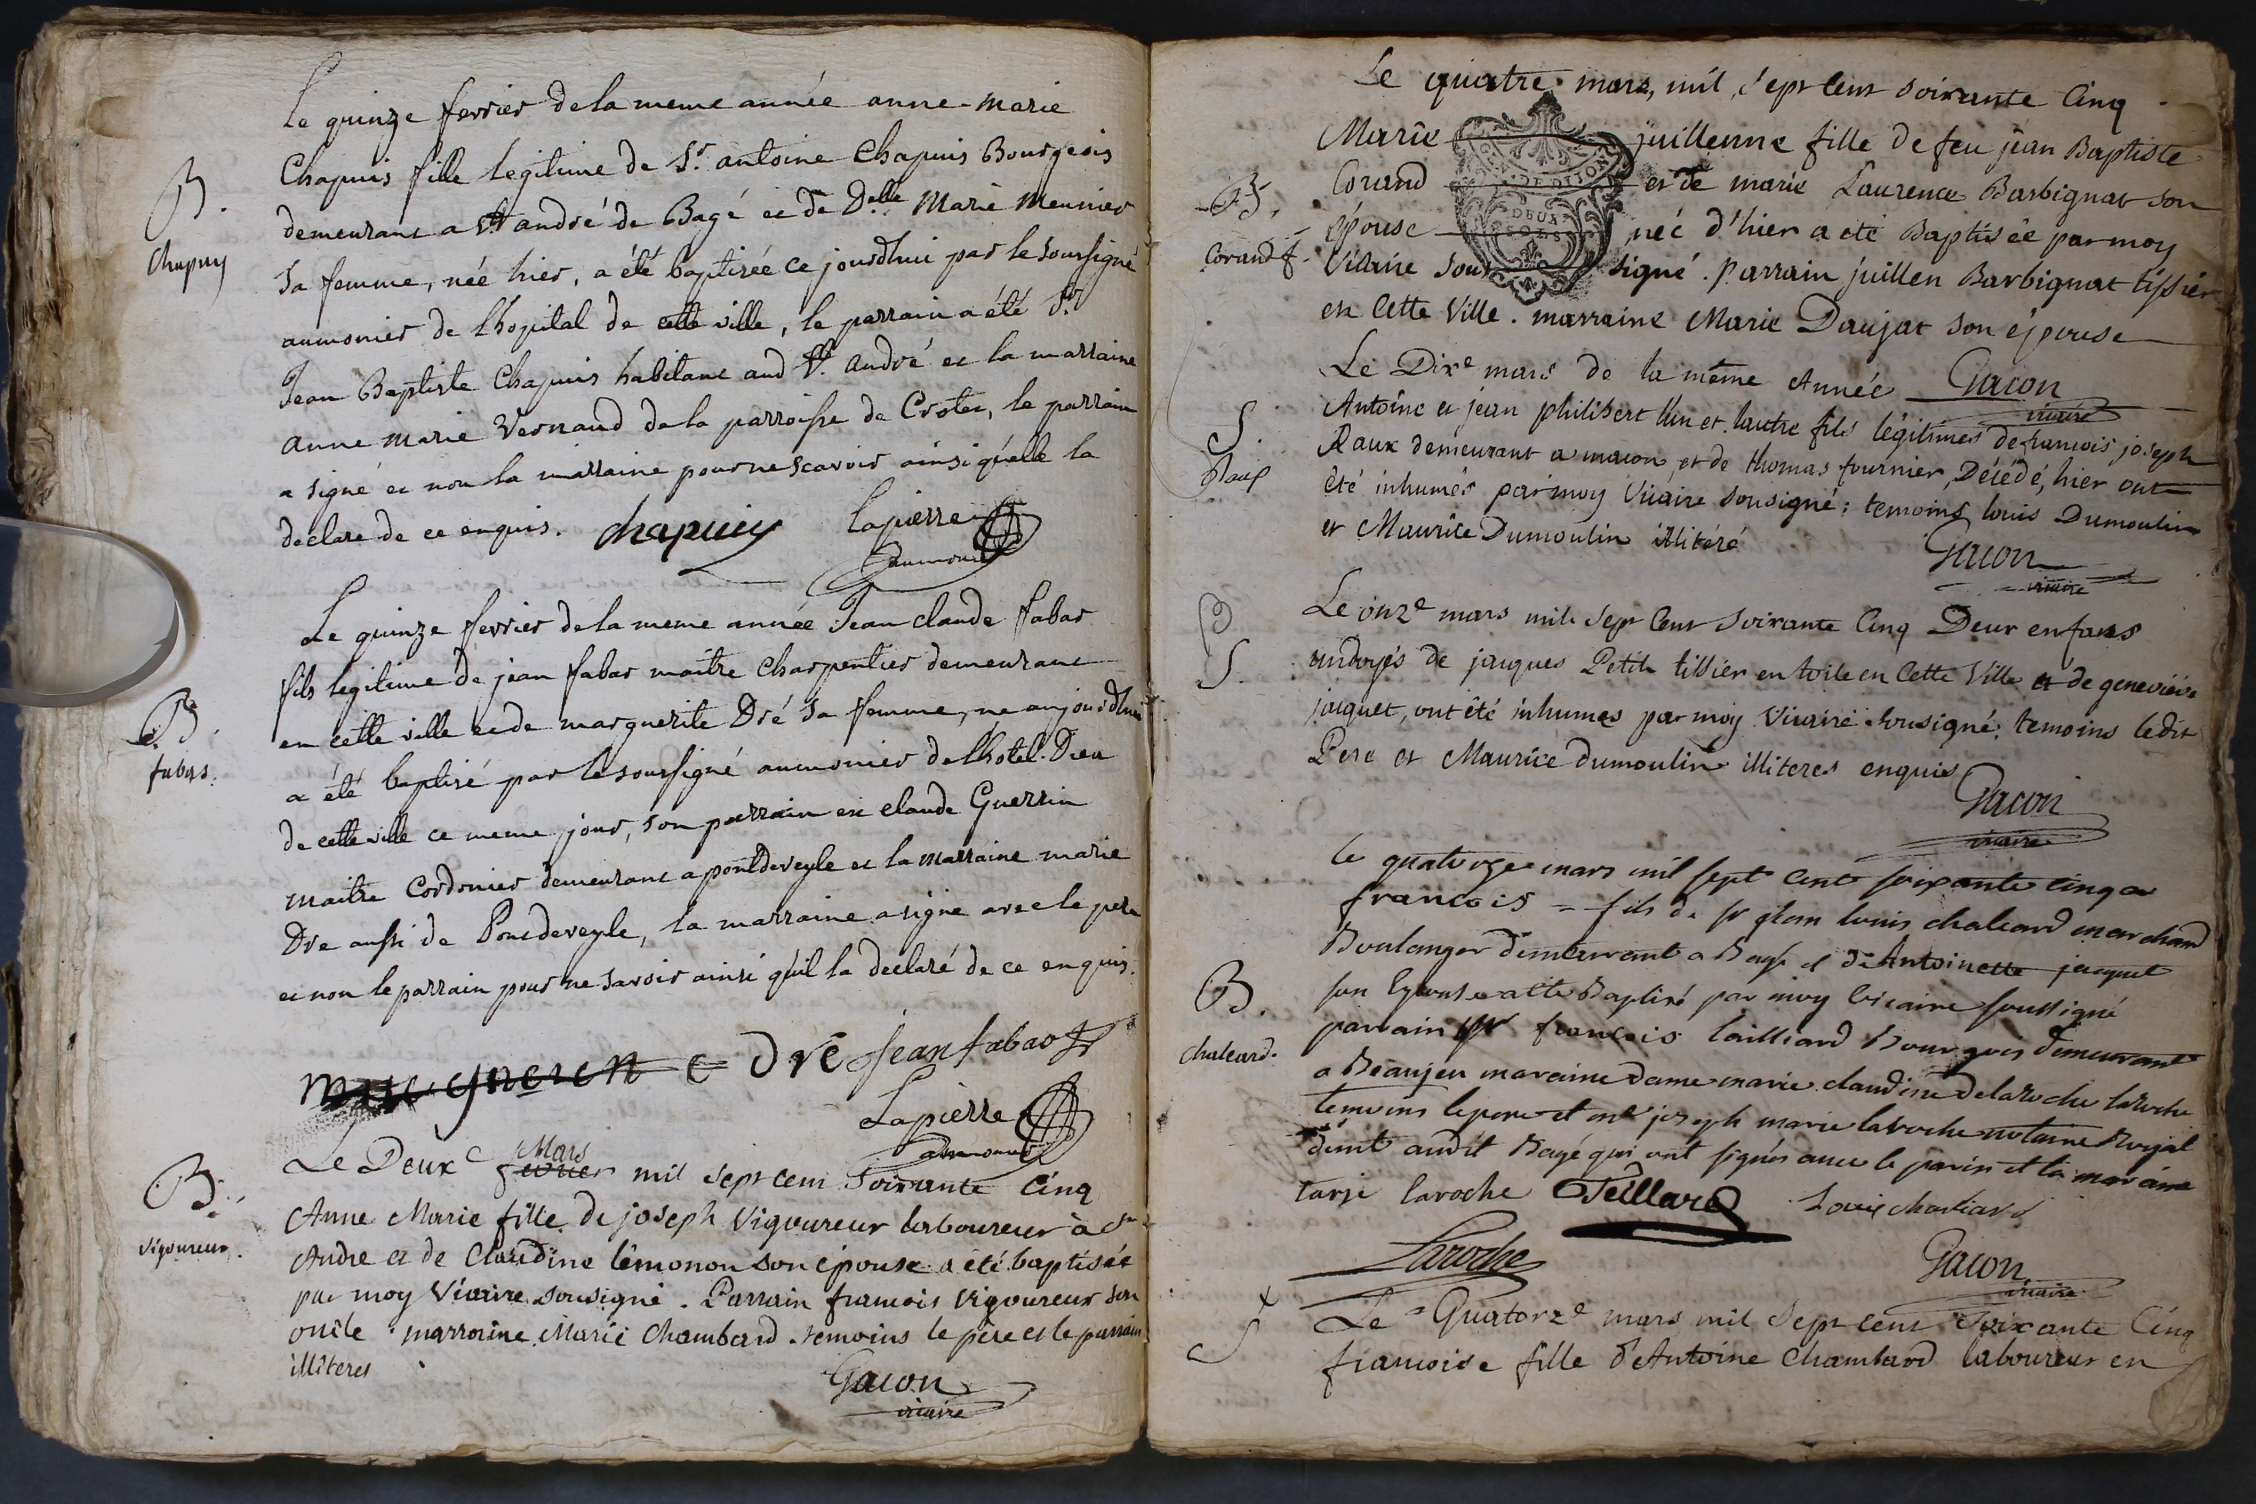 Le quinze fevrier de la meme année anne-marie
B. Chapuis fille legitime de Sr. antoine Chapuis Bourgeois
Chapuy demeurant a St andré de Bagé et de Delle Marie Meunier
sa femme, née hier, a été baptisée ce jourdhui par le soussigné
aumonier de lhopital de cette ville, le parrain a été Sr
Jean Baptiste Chapuis habitant aud St. andré et la marraine
anne marie Vernaud de la parroisse de Crotet, le parrain
a signé et non la marraine pour ne scavoir ainsi qu'elle la
declaré de ce enquis. chapuis Lapierre
aumonier
Le quinze fevrier de la meme année Jean claude fabar
fils legitime de jean fabar maitre charpentier demeurant
B. en cette ville et de marguerite Dré sa femme, ne aujourdhui
fabar. a été baptisé par le soussigné aumonier de lhotel-Dieu
de cette ville ce meme jour, son parrain est claude Guerrin
maitre Cordonier demeurant a pontdeveyle et la marraine marie
Dre aussi de Pontdeveyle, la marraine a signé avec le pere
et non le parrain pour ne savoir ainsi qu'il la declaré de ce enquis.
dré Jean fabar
Lapierre
aumonier
Mars
B. Le Deuxe fevrier mil sept cent Soixante Cinq
Vigoureux. Anne Marie fille de joseph Vigoureux laboureur à St
Andre et de Claudine lémonon son épouse a été baptisée
par moy Vicaire sousigné. Parrain francois Vigoureux son
oncle. marraine Marie Chambard. temoins le père et le parrain
illiteres
Gacon
vicaire
Le quatre mars, mil, sept cent soixante Cinq
Marie juillenne fille de feu jean Baptiste
GEN. DE DIJON
DEUX
SOLS
B. Corand et de marie Laurence Barbignat son
Corand f. épouse née d'hier a été Baptisée par moy
Vicaire sous signé. Parrain juillen Barbignat tissier
en Cette Ville. marraine Marie Daujat son épouse
Gacon
vicaire
Le Dixe mars de la même Année
S. Antoine et jean philibert l'un et lautre fils légitimes de francois joseph
Raux demeurant a macon, et de thomas fournier, Décédé, hier ont
été inhumés par moy Vicaire sousigné; temoins louis Dumoulin
et Maurice Dumoulin illitéré
Gacon
vicaire
Le onze mars mil Sept Cent Soixante Cinq Deux enfans
S. ondoyés de jacques Petit tissier en toile en Cette Ville et de genevieve
jacquet, ont été inhumes par moy Vicaire sousigné. temoins ledit
Pere et Maurice dumoulin illiteres enquis
Gacon
vicaire
le quatorze mars mil sept cent soixante cinq a
francois = fils de sr louis chaleard marchand
Boulanger demeurant a Bagé et de Antoinette jacquet
B. son Epouse a été Baptisé par moy Vicaire soussigné
chaleard. parrain sr francois Bourgois demeurant
a Beaujeu maraine dame marie claudine delaroche laroche
temoins le pere et mr joseph marie laroche notaire Royal
demt audit Bagé qui ont signés avec le parin et la maraine
laroche Teillard Louis chaleard
Laroche
Gacon
vicaire
S Le Quatorze mars mil Sept cent Soixante Cinq
francoise fille d'Antoine Chambard laboureur en